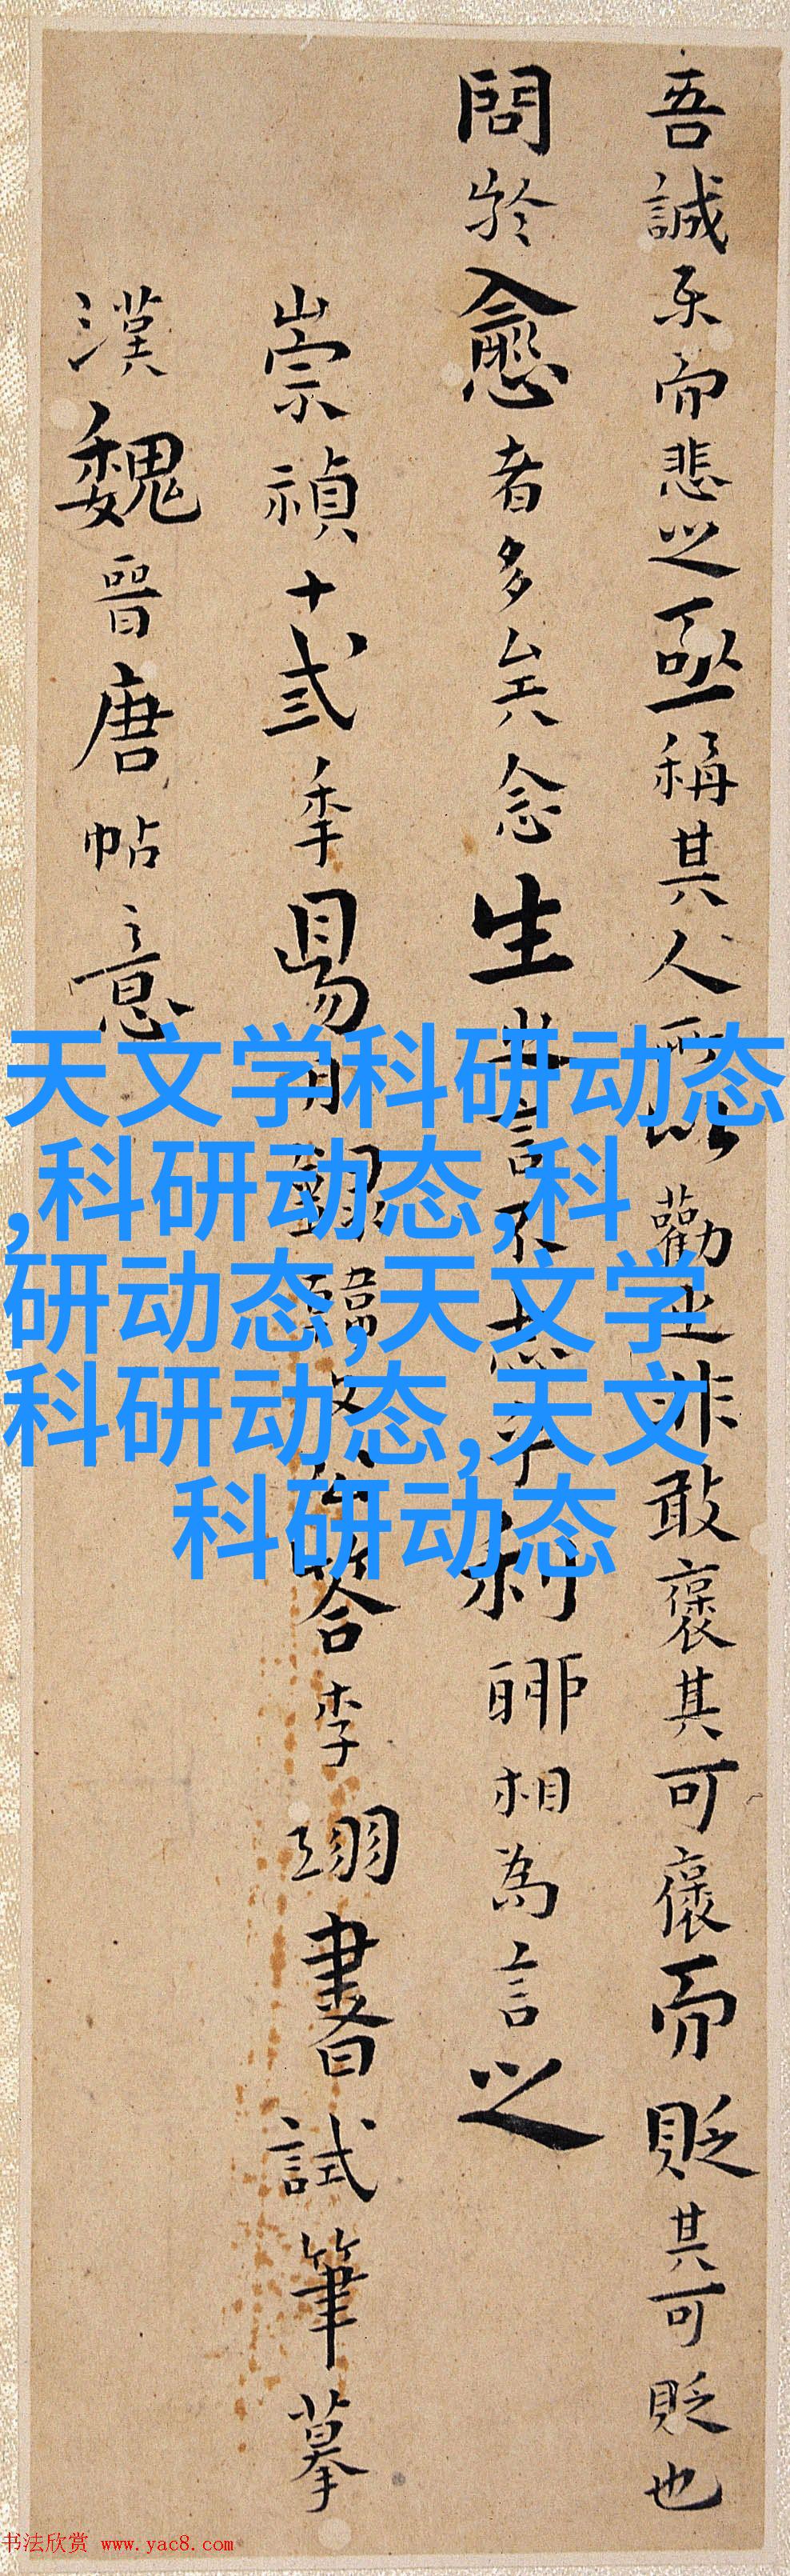 吾誠樂而悲之亟稱其人所以勸之非敢褒其可褒而貶其可貶也
問於愈者多矣念生之言不志乎利聊相為言之
崇禎十弎季昜月録韓文公答李翊書試筆摹
漢魏晉唐帖意
天文学科研动态
,科研动态,科
研动态,天文学
科研动态,天文
科研动态
书法欣赏 www.yac8.com